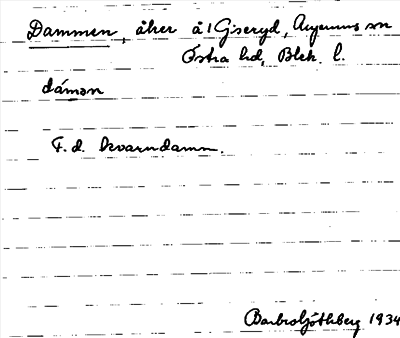 Dammen, åker å 1 Giseryd, Augerums sn
Östra hd, Blek. l.
dámən
F.d. kvarndamm.
Barbro Götberg 1934